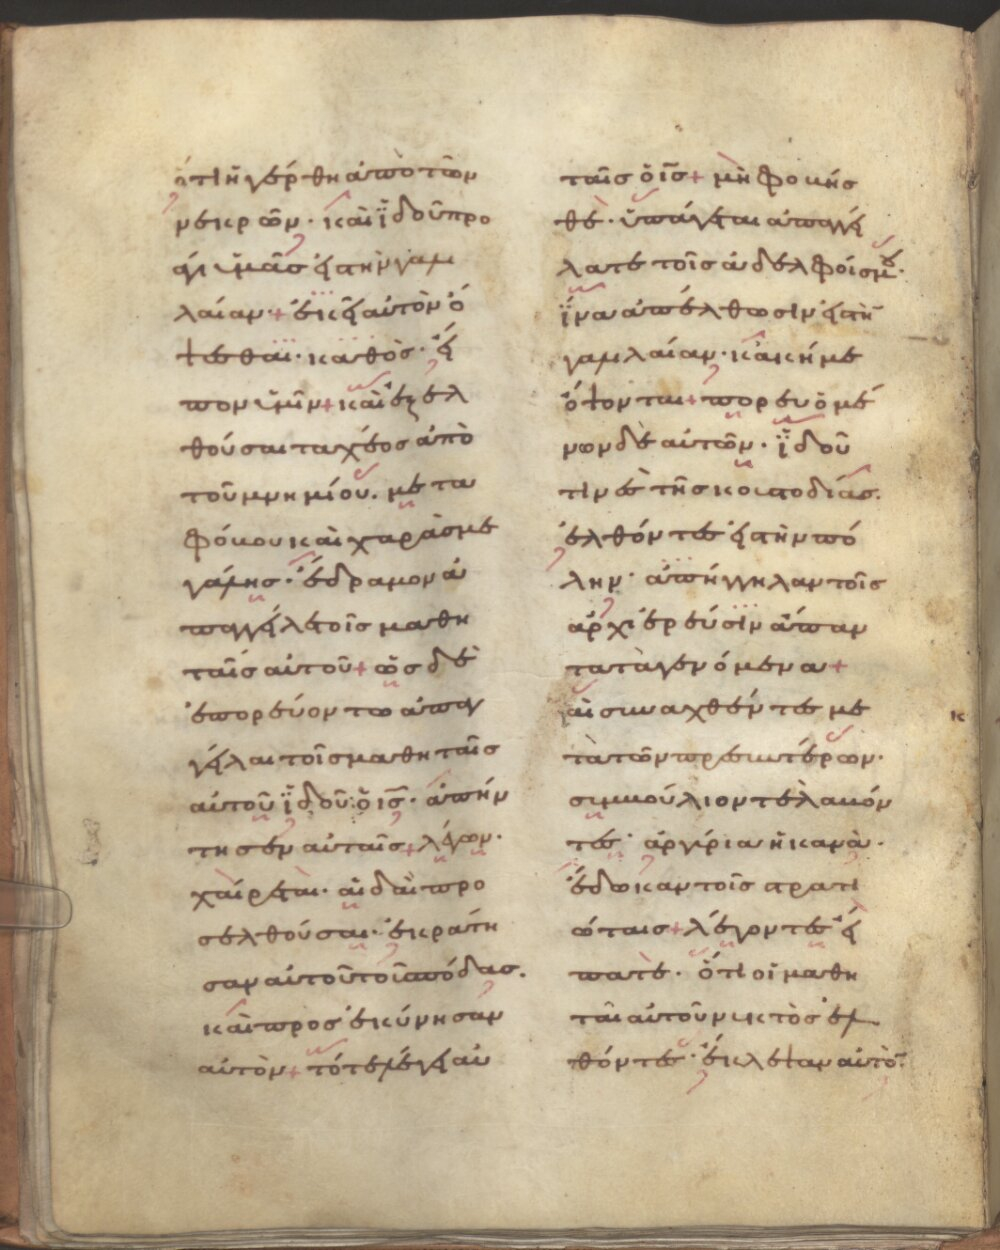 ότι ἠγέρθη ἀπὸ τῶν
νεκρῶν· καὶ ἰδοῦ προ
άγι ὑμᾶς εἰς τὴν γαλ
λαίαν + ἐκεῖ αὐτὸν ὄ
ψεσθαι· καθὸς· εἴ
πον ὑμῖν + καὶ ἐξελ
θούσαι ταχέος ἀπὸ
τοῦ μνημίου. μετα
φόβου καὶ χαρὰς με
γάλης· ἔδραμον ἀ
παγγέιλε τοῖς μαθη
ταῖς αὐτοῦ + ὡς δὲ
ἐπορεύοντω ἀπαγ
γέλαι τοῖς μαθηταῖς
αὐτοῦ ἰδοῦ· ὁ ις· ἀπήν
τησεν αὐταῖς + λέγων·
χαίρεται· αἱ δαὶ προ
σελθούσαι· ἐκράτη
σαν αὐτοῦ τοῦ πόδας.
καὶ προσ ἐκύνησαν
αὐτὸν + τότε λέγει αὐ
ταῖς ὁ ις + μὴ φοβήσ
θὲ· ὑπάγεται ἀπαγγεί
λατε τοῖς ἀδελφοίς μου·
ἵνα ἀπέλθωσιν εἰς τὴν
γαλλαίαν· κἀκή με
ὄψονται + πορευὁμέ
νων δὲ αὐτῶν· ἰδοῦ
τινὲς τῆς κουστοδίας.
ἐλθόντες εἰς τὴν πό
λην· ἀπήγγηλαν τοῖς
ἀρχιερεύσιν ἅπαν
τα τὰ γενόμενα +
αἱ συναχθέντες με
τὰ τῶν πρεσβυτέρων·
συμβούλιον τε λαβόν
τες· ἀργύρια ἡκανὰ·
ἔδωκαν τοῖς στρατι
ώταις + λέγοντες εἴ
πατὲ· ὅτι οἱ μαθη
ταὶ αὐτοῦ νυκτὸς ἐλ
θόντες· ἔκλεψαν αὐτὸν·
κ